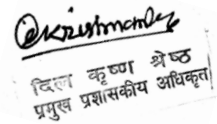 दिल कृष्ण श्रेष्ठ
प्रमुख प्रशासकीय अधिकृत